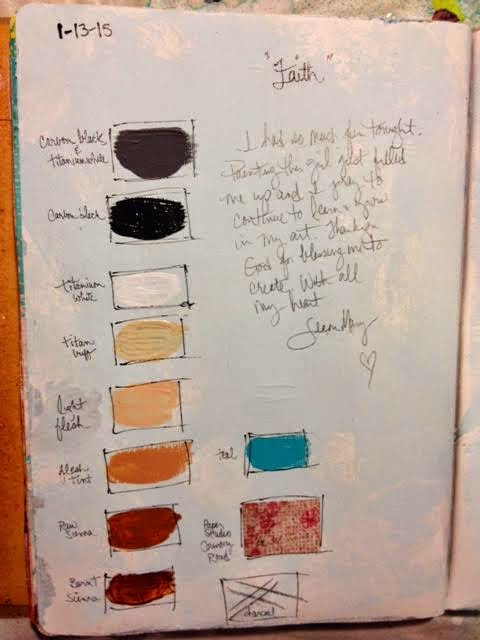 1-13-15
"Faith"
I had so much fun tonight.
Painting this girl just filled
me up and I pray to
continue to learn & grow
in my art. Thank you
God for blessing me to
create. With all
my heart
Carbon black
&
titanium white
Carbon black
titanium
white
titan
buff
light
flesh
flesh
tint
Raw
Sienna
Burnt
Sienna
teal
Paper
Studio
Country
Road
charcoal